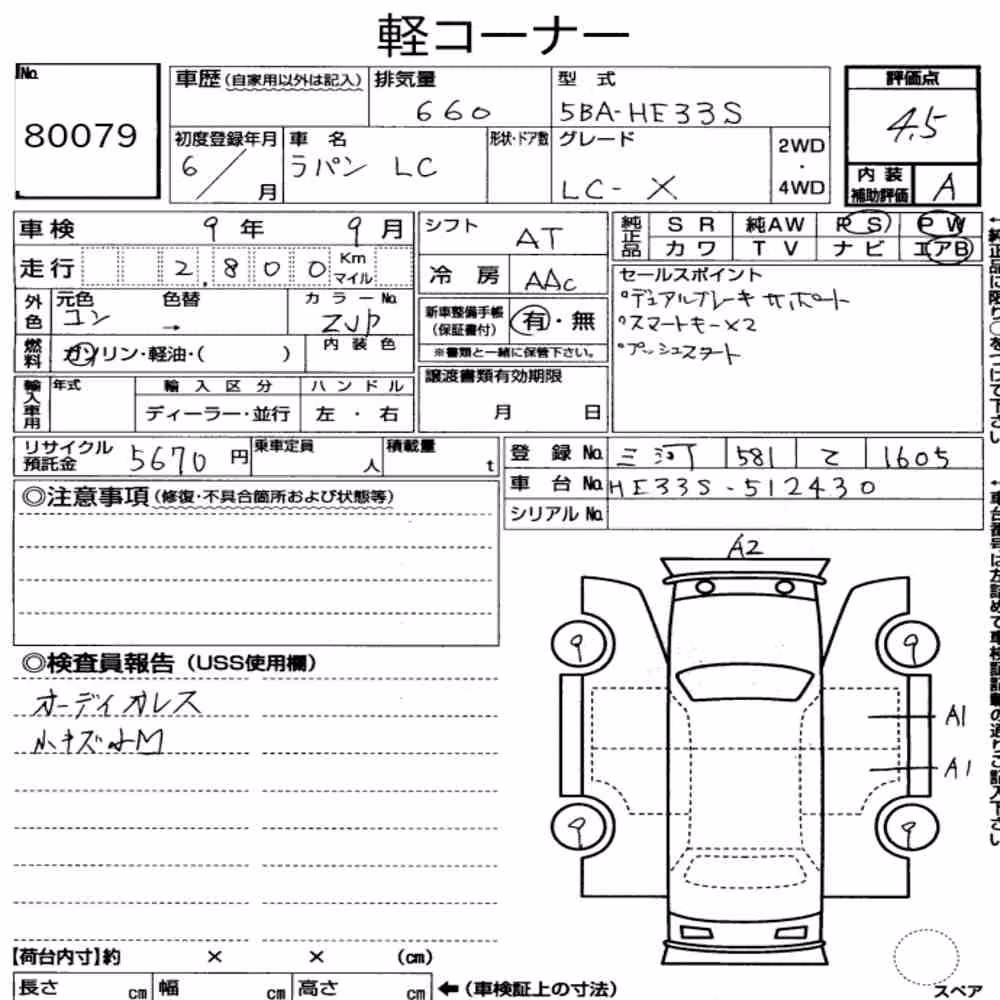 軽コーナー
No. 80079
車歴(自家用以外は記入)
排気量 660
型 式 5BA-HE33S
評価点 4.5
初度登録年月 6/ 月
車 名 ラパン LC
形状・ドア数
グレード LC-X
2WD ・ 4WD
内 装 補助評価 A
車検 9 年 9 月
シフト AT
純正品 SR 純AW PS PW
カワ TV ナビ エアB
走行 2,800 Km マイル
冷 房 AAC
セールスポイント
デュアルブレーキサポート
スマートキー×2
プッシュスタート
外色 元色 コン 色替 → カラーNo. ZJP
新車整備手帳 (保証書付) 有・無
※書類と一緒に保管下さい。
燃料 ガソリン・軽油・( ) 内 装 色
輸入車用 年式 輸 入 区 分 ハ ン ド ル
ディーラー・並行 左 ・ 右
譲渡書類有効期限
月 日
リサイクル預託金 5670 円
乗車定員 人
積載量 t
登 録 No. 三河 581 て 1605
車 台 No. HE33S-512430
シリアル No.
◎注意事項(修復・不具合箇所および状態等)
A2
◎検査員報告(USS使用欄)
オーディオレス
小キズ凹M
9
9
A1
A1
9
9
【荷台内寸】約 × × (cm)
長さ cm 幅 cm 高さ cm ←(車検証上の寸法)
スペア
←純正品に限り○をつけて下さい